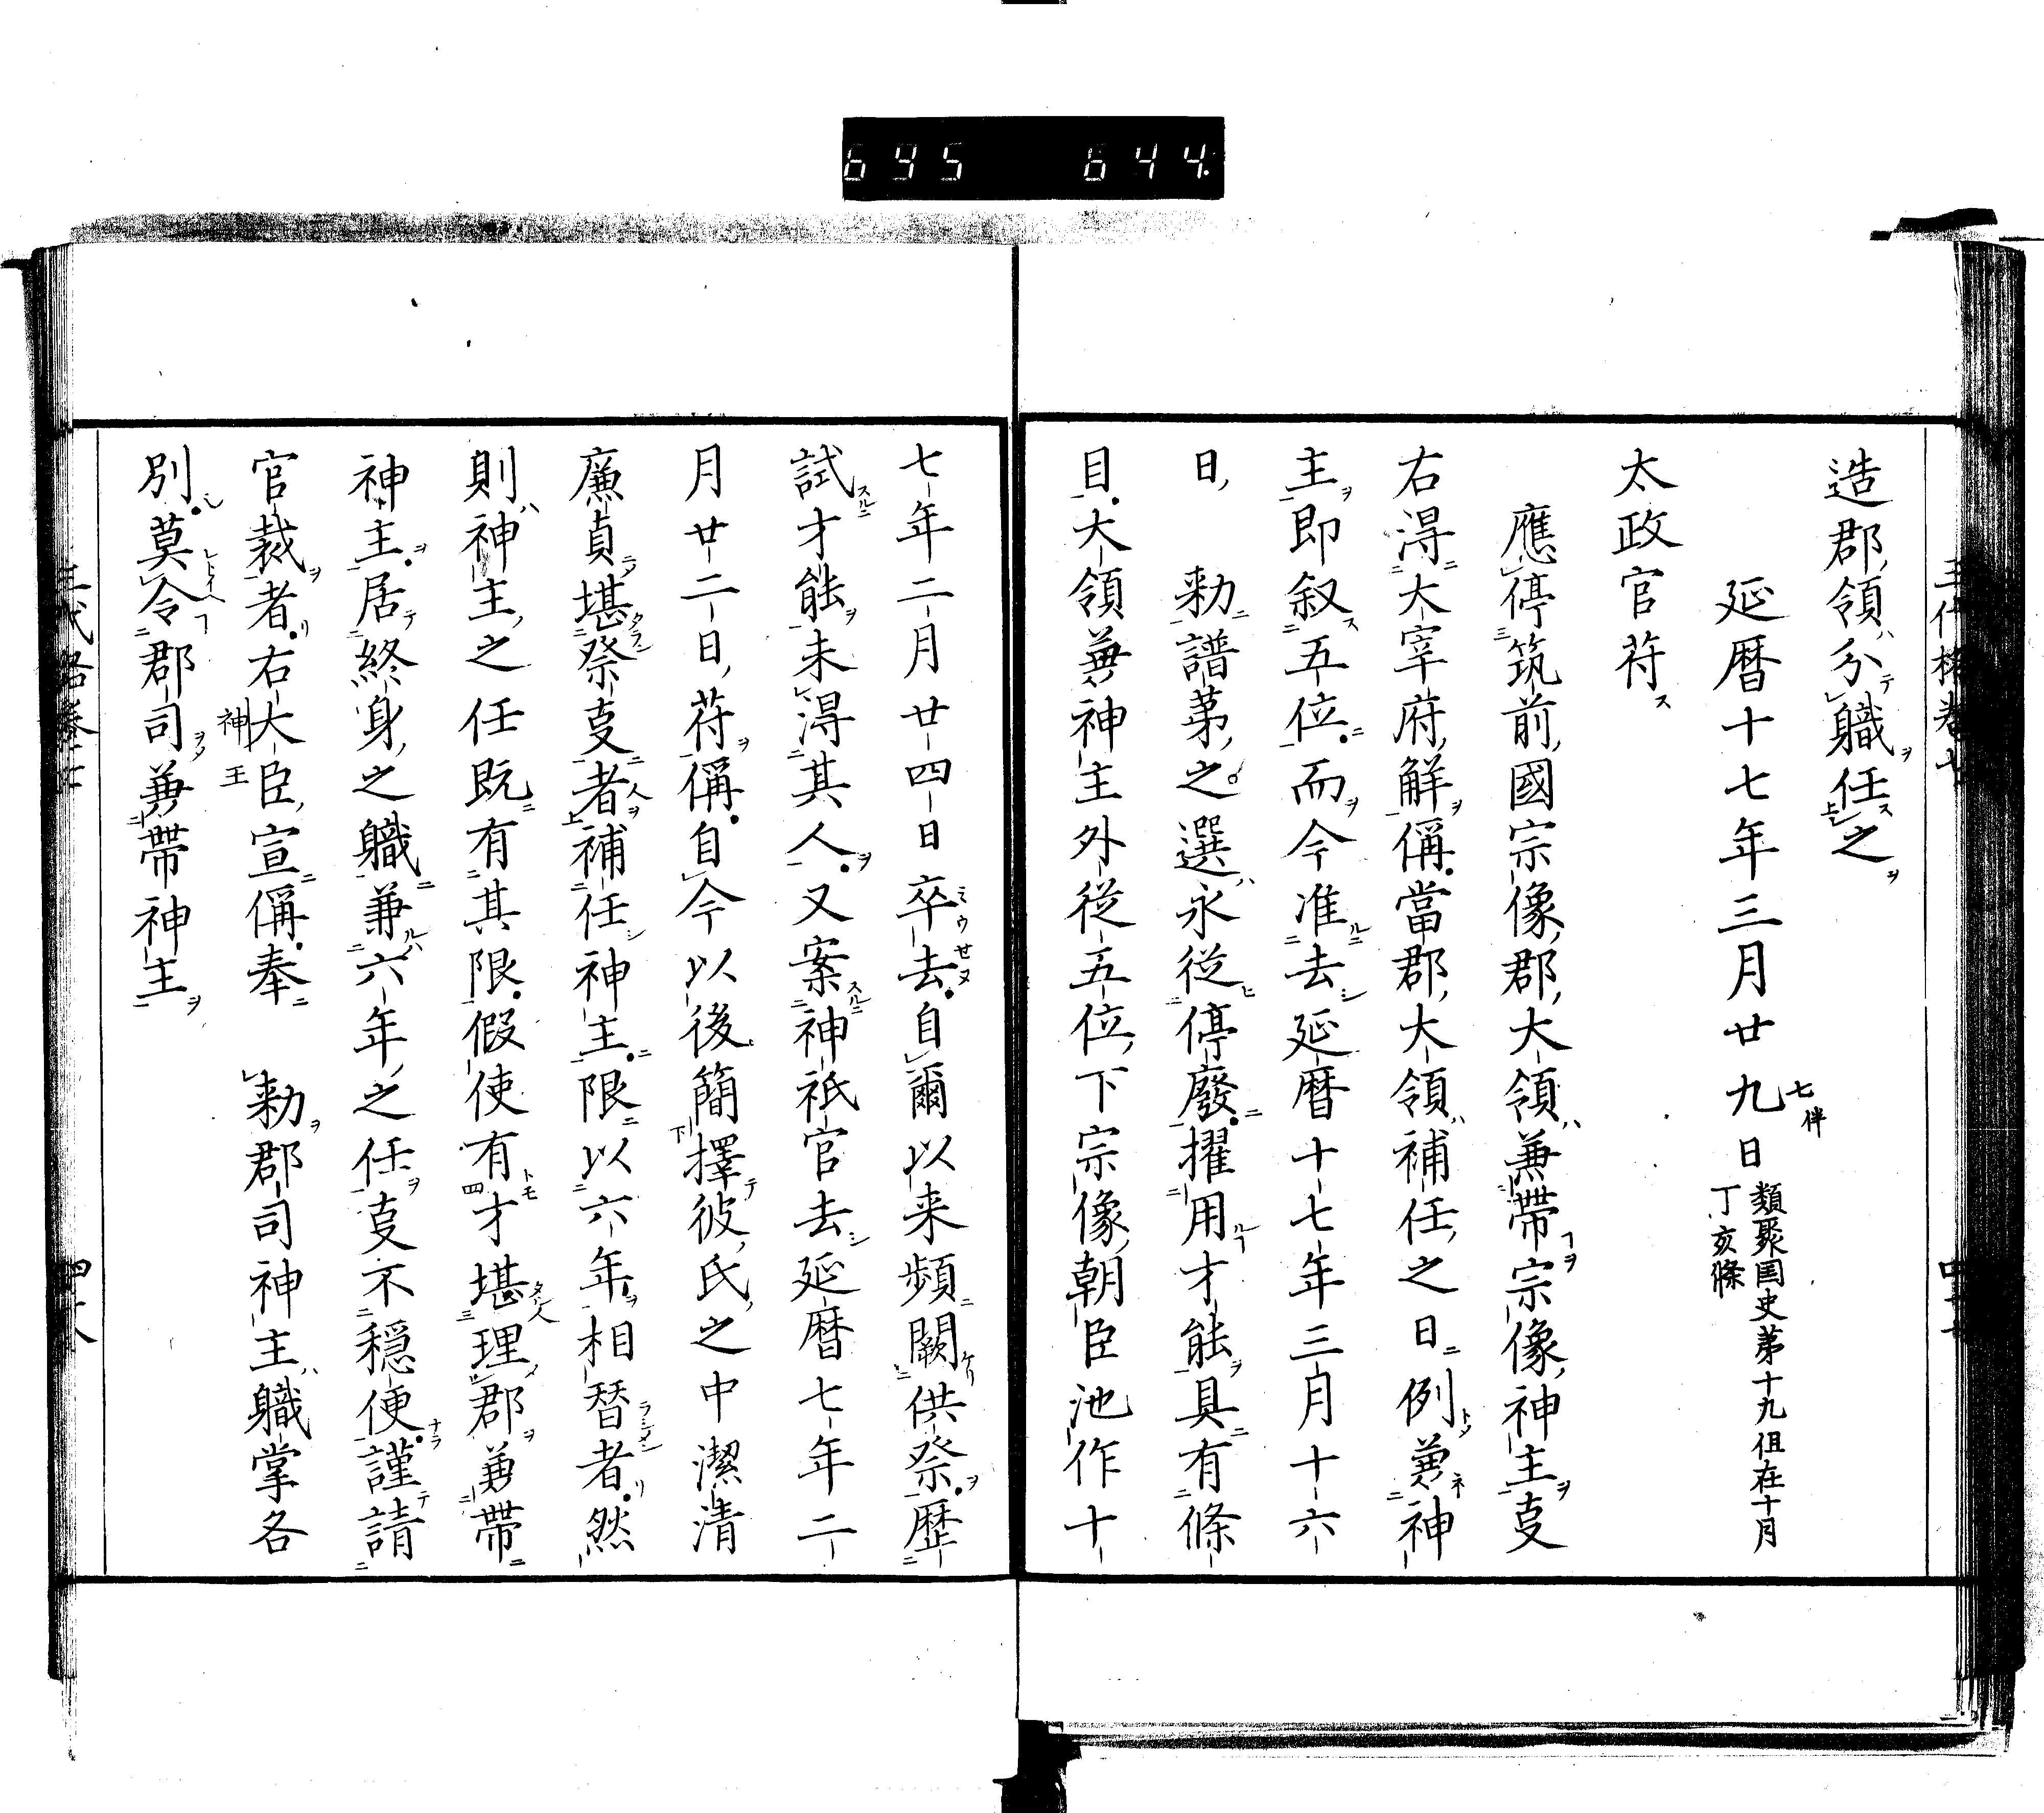 造郡領分職任之
延暦十七年三月廿九日 類聚国史第十九但在十月丁亥條
七 伴
太政官苻
應停筑前國宗像郡大領兼帶宗像神主事
右得大宰府解稱當郡大領補任之日例兼神
主即叙五位而今准去延暦十七年三月十六
日 勅譜第之選永従停廢擢用才能具有條
目大領兼神主外従五位下宗像朝臣池作十
七年二月廿四日卒去自爾以来頻闕供祭歴
試才能未得其人又案神祇官去延暦七年二
月廿二日苻稱自今以後簡擇彼氏之中潔清
廉貞堪祭事者補任神主限以六年相替者然
則神主之任既有其限假使有才堪理郡兼帶
神主居終身之職兼六年之任事不穩便謹請
官裁者右大臣宣稱奉 勅郡司神主職掌各
神王
別莫令郡司兼帶神主